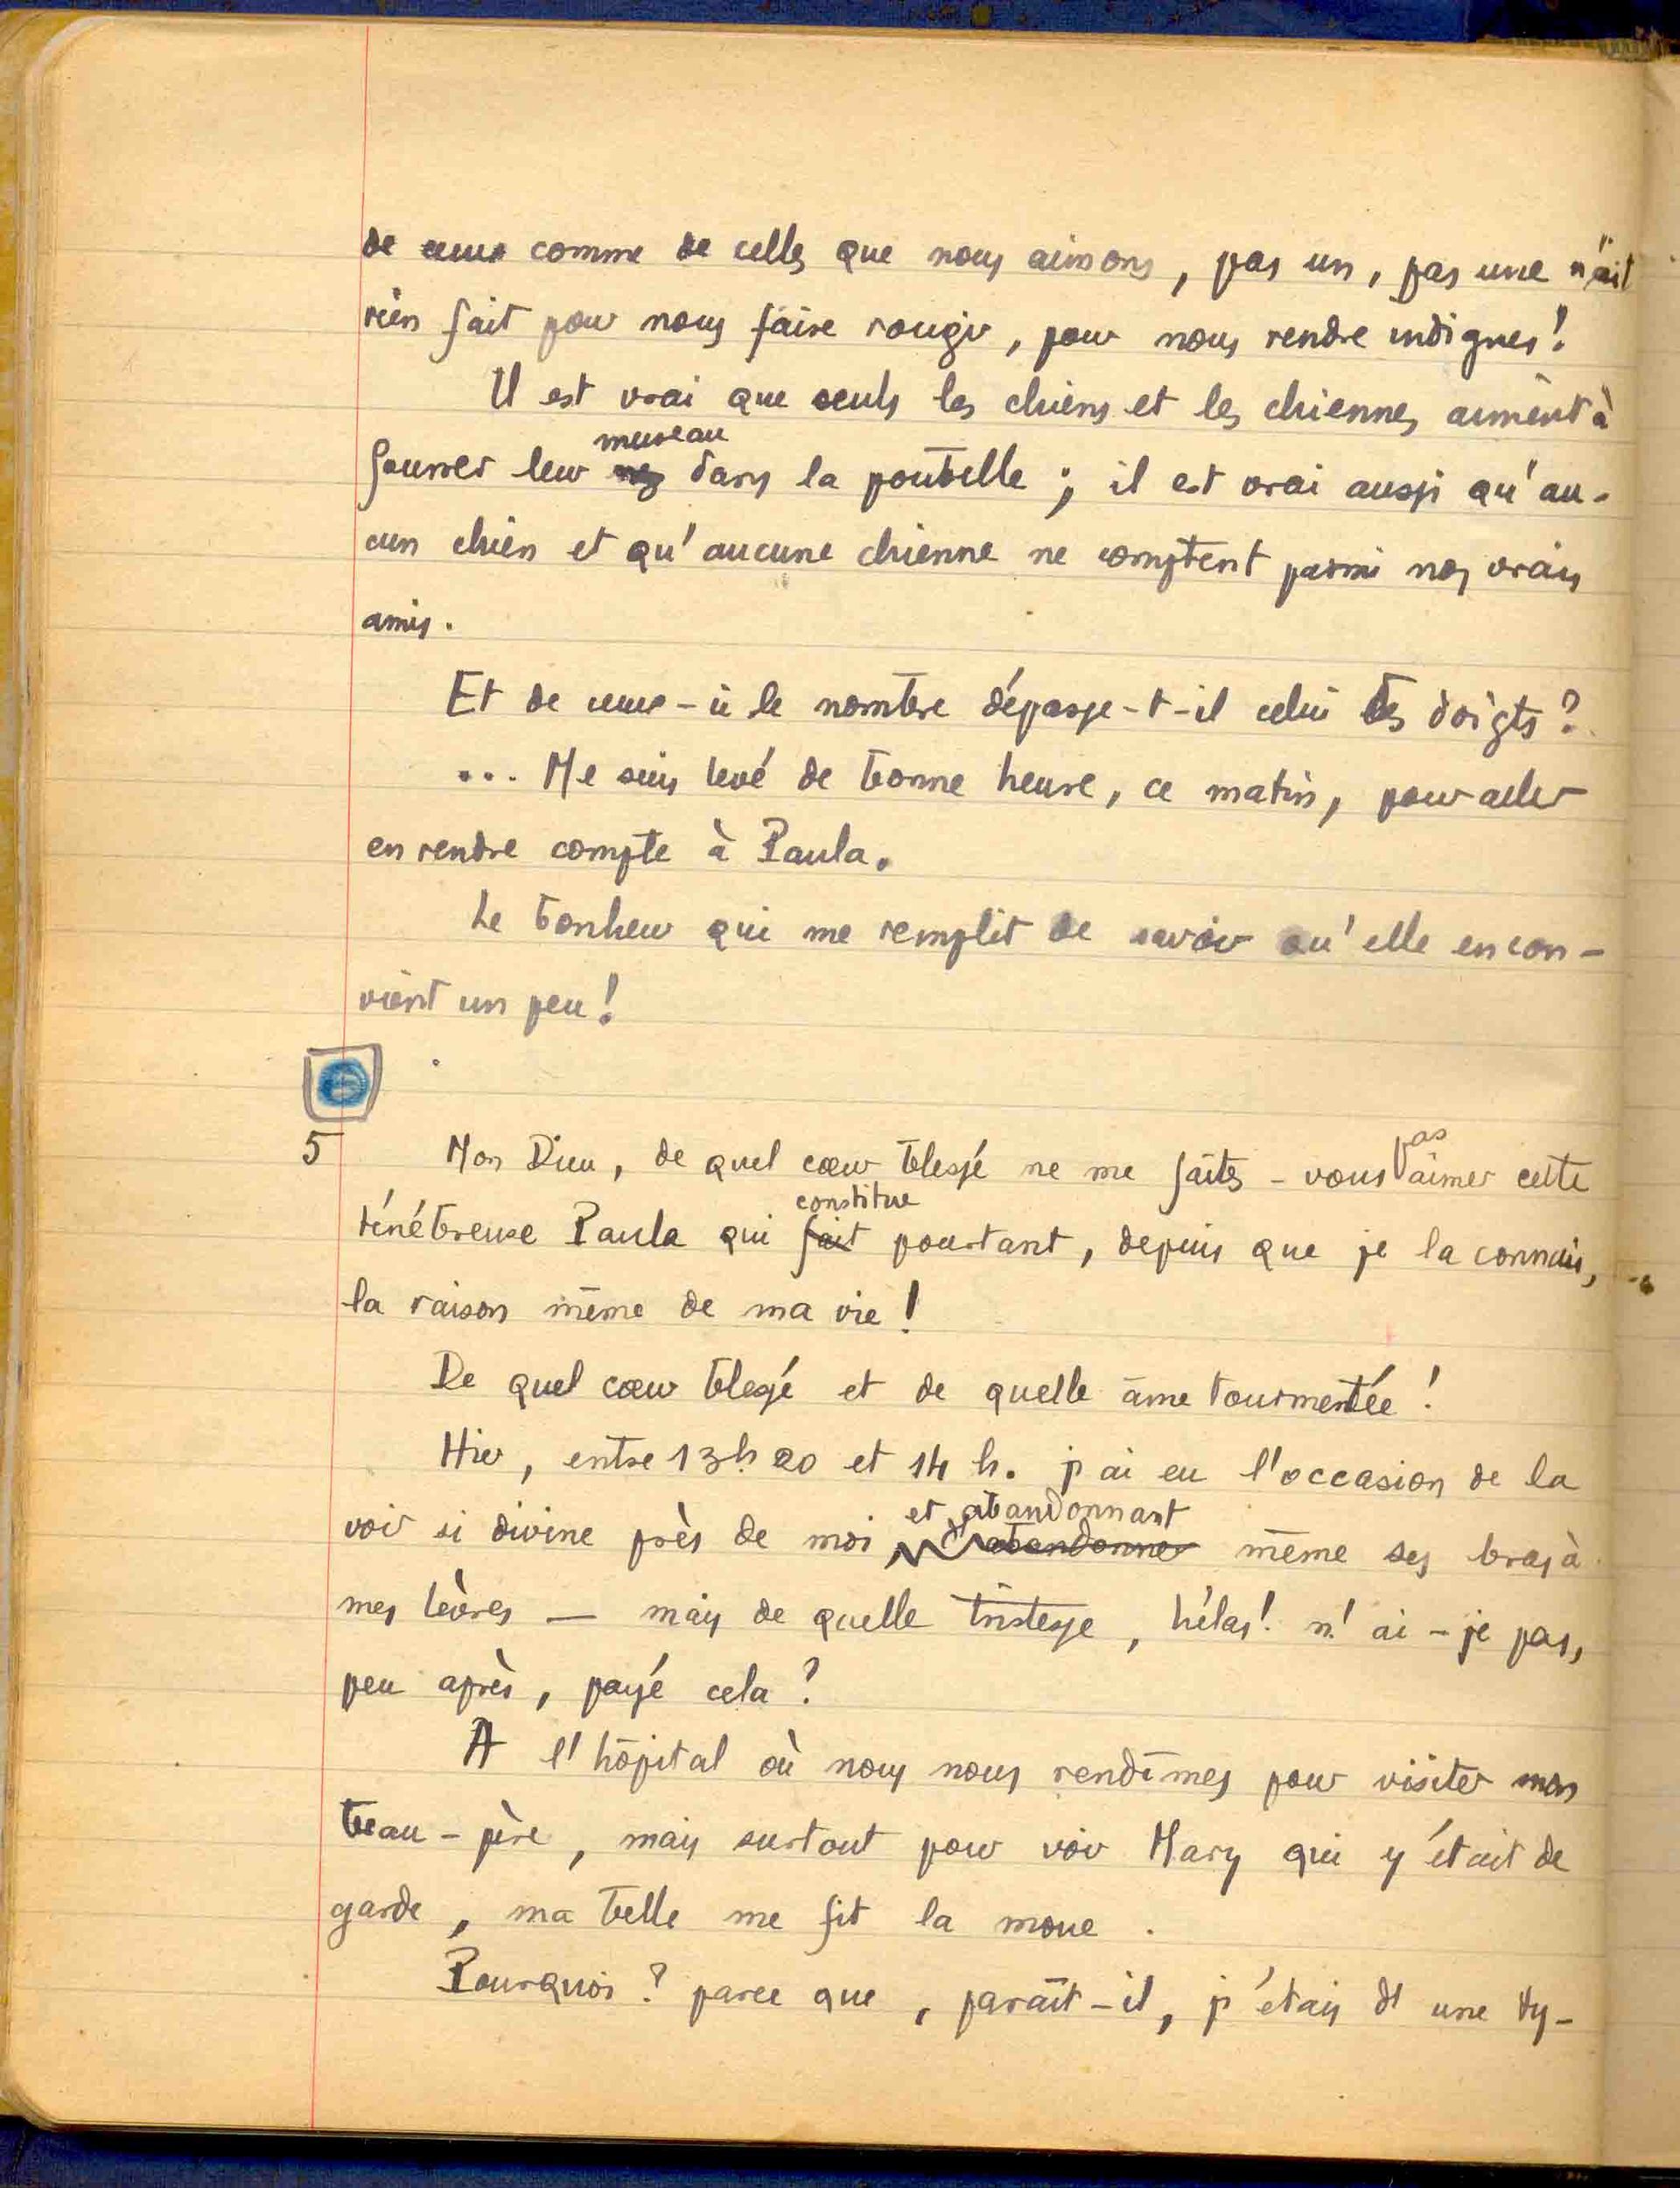 de ceux comme de celles que nous aimons, pas un, pas une n'ait
rien fait pour nous faire rougir, pour nous rendre indignes!
Il est vrai que seuls les chiens et les chiennes aiment à
fourrer leur museau dans la poubelle; il est vrai aussi qu'au-
cun chien et qu'aucune chienne ne comptent parmi nos vrais
amis.
Et de ceux-ci le nombre dépasse-t-il celui des doigts?
... Me suis levé de bonne heure, ce matin, pour aller
en rendre compte à Paula.
Le bonheur qui me remplit de savoir qu'elle en con-
vient un peu!
5 Mon Dieu, de quel cœur blessé ne me faites-vous pas aimer cette
ténébreuse Paula qui fait constitue pourtant, depuis que je la connais,
la raison même de ma vie!
De quel cœur blessé et de quelle âme tourmentée!
Hier, entre 13 h 20 et 14 h. j'ai eu l'occasion de la
voir si divine près de moi et abandonnant abandonner même ses bras à
mes lèvres — mais de quelle tristesse, hélas! n'ai-je pas,
peu après, payé cela?
A l'hôpital où nous nous rendîmes pour visiter mon
beau-père, mais surtout pour voir Mary qui y était de
garde, ma belle me fit la moue.
Pourquoi? parce que, paraît-il, j'étais d'une ty-